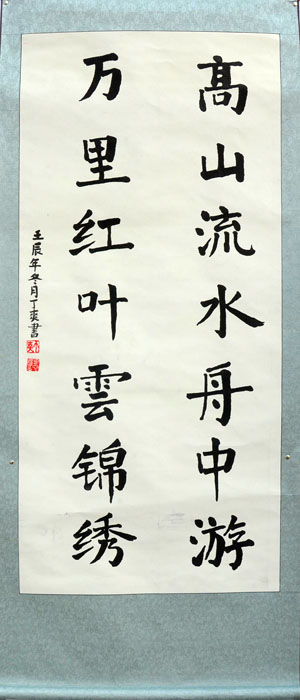 髙山流水舟中游
万里红叶雲锦绣
壬辰年冬月丁爽書